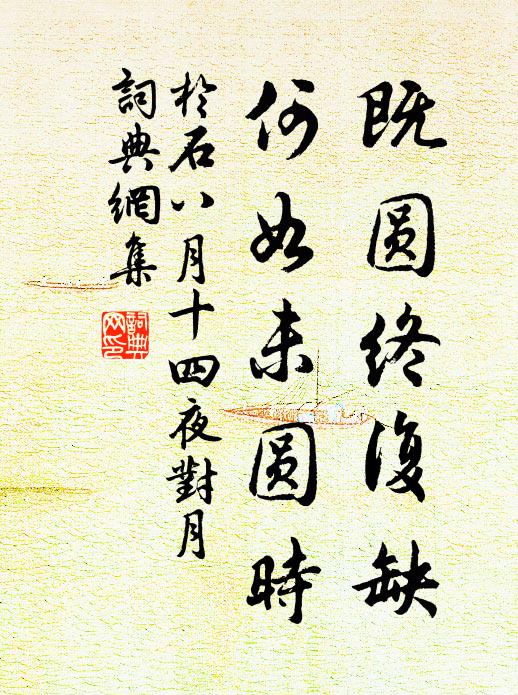 既圆终復缺
何如未圆時
於石八月十四夜對月
詞典網集
詞典网印